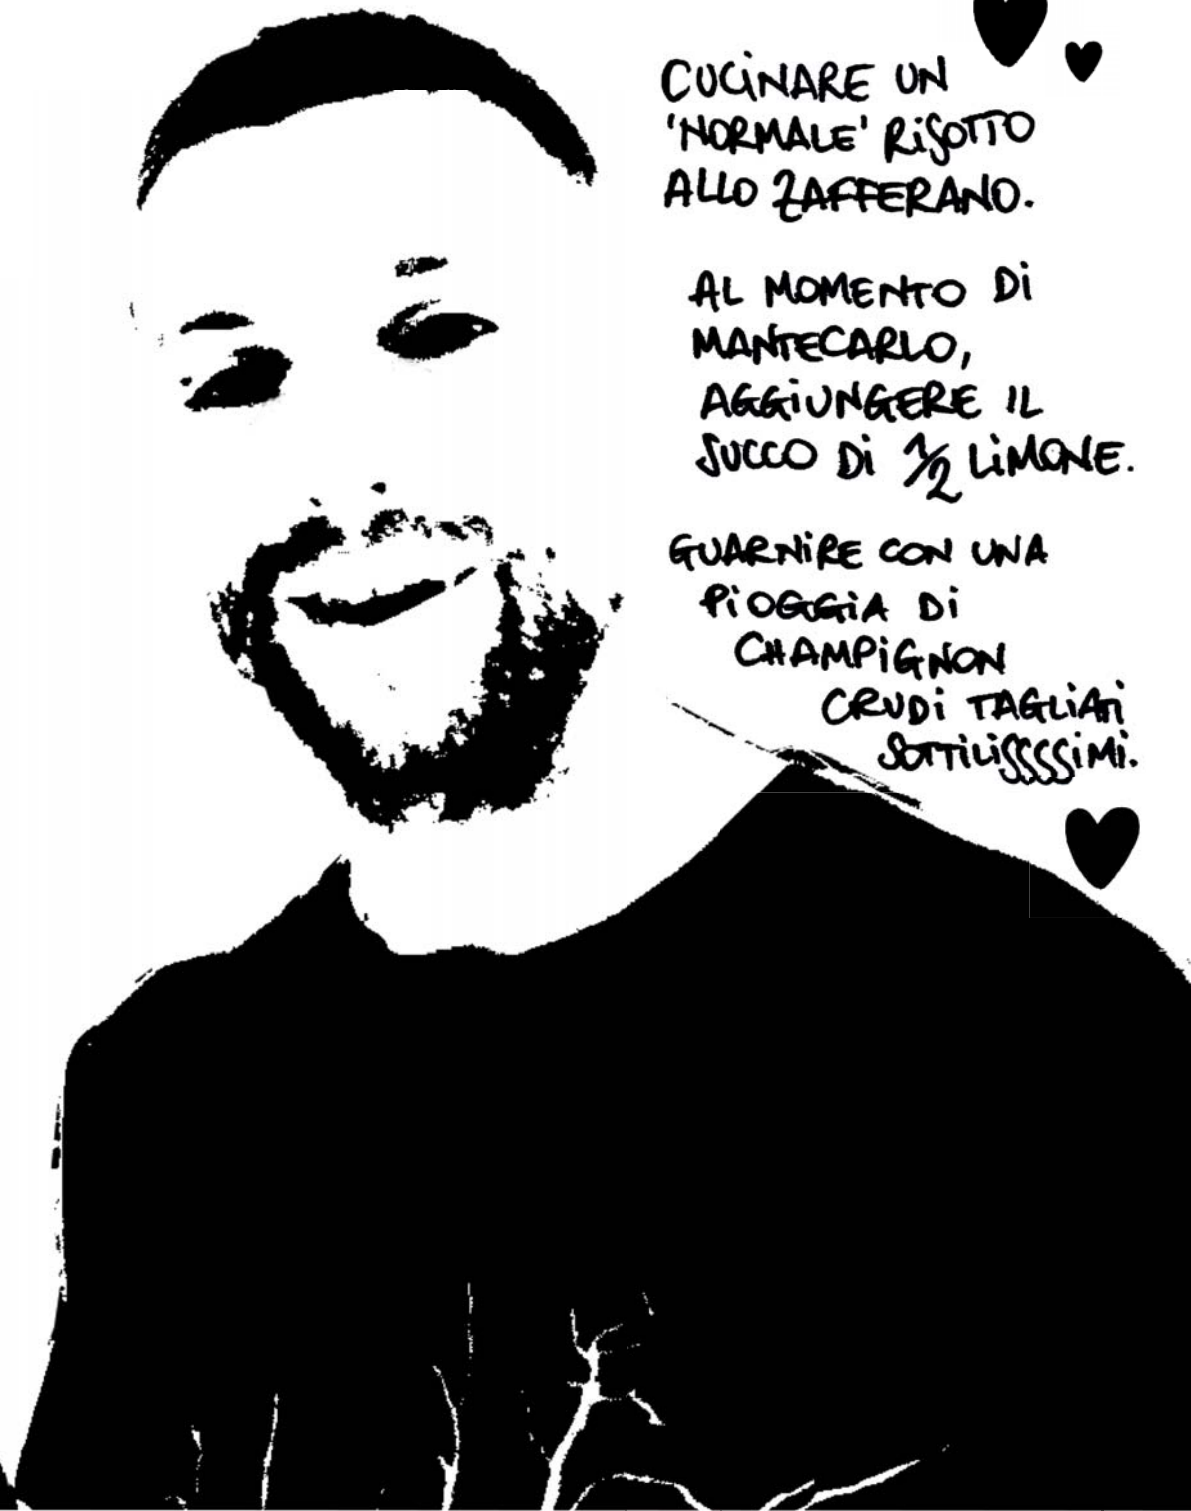 CUCiNARE UN
'NORMALE' RiSOTTO
ALLO ZAFFERANO.
AL MOMENTO Di
MANTECARLO,
AGGiUNGERE IL
SUCCO Di 1/2 LiMONE.
GUARNiRE CON UNA
PiOGGiA Di
CHAMPiGNON
CRUDi TAGLiATi
SOTTiLiSSSSiMi.